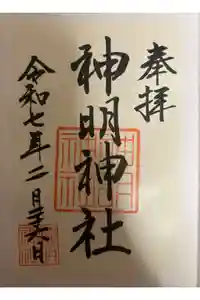 奉拝
神明神社
令和七年二月二十六日